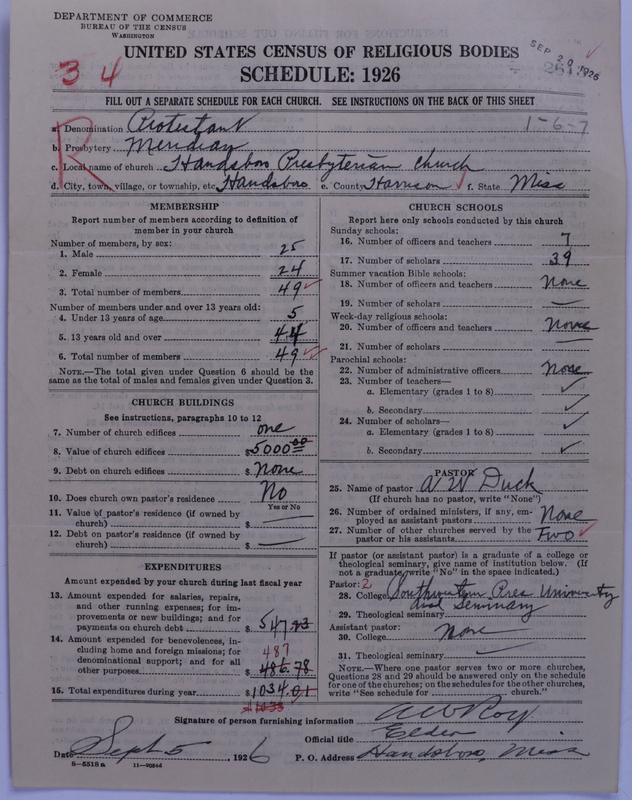 DEPARTMENT OF COMMERCE
BUREAU OF THE CENSUS
WASHINGTON
UNITED STATES CENSUS OF RELIGIOUS BODIES
SCHEDULE: 1926
SEP 20 1926
3 4
FILL OUT A SEPARATE SCHEDULE FOR EACH CHURCH. SEE INSTRUCTIONS ON THE BACK OF THIS SHEET
1-6-7
R
a. Denomination Protestant
b. Presbytery Meridian
c. Local name of church Handsboro Presbyterian Church
d. City, town, village, or township, etc. Handsboro e. County Harrison f. State Miss
MEMBERSHIP
Report number of members according to definition of
member in your church
Number of members, by sex:
1. Male 25
2. Female 24
3. Total number of members 49
Number of members under and over 13 years old:
4. Under 13 years of age 5
5. 13 years old and over 44
6. Total number of members 49
NOTE.—The total given under Question 6 should be
same as the total of males and females given under Question 3.
CHURCH BUILDINGS
See instructions, paragraphs 10 to 12
7. Number of church edifices one
8. Value of church edifices $5000 00
9. Debt on church edifices $ None
10. Does church own pastor's residence No
Yes or No
11. Value of pastor's residence (if owned by
church) $
12. Debt on pastor's residence (if owned by
church) $
EXPENDITURES
Amount expended by your church during last fiscal year
13. Amount expended for salaries, repairs,
and other running expenses; for im-
provements or new buildings; and for
payments on church debt $ 547.23
14. Amount expended for benevolences, in-
cluding home and foreign missions; for 487
denominational support; and for all
other purposes $ 486.78
15. Total expenditures during year $ 1034.01
CHURCH SCHOOLS
Report here only schools conducted by this church
Sunday schools:
16. Number of officers and teachers 7
17. Number of scholars 39
Summer vacation Bible schools:
18. Number of officers and teachers None
19. Number of scholars
Week-day religious schools:
20. Number of officers and teachers None
21. Number of scholars
Parochial schools:
22. Number of administrative officers None
23. Number of teachers—
a. Elementary (grades 1 to 8)
b. Secondary
24. Number of scholars—
a. Elementary (grades 1 to 8)
b. Secondary
PASTOR
25. Name of pastor A W Duck
(If church has no pastor, write "None")
26. Number of ordained ministers, if any, em-
ployed as assistant pastors None
27. Number of other churches served by the
pastor or his assistants Two
If pastor (or assistant pastor) is a graduate of a college or
theological seminary, give name of institution below. (If
not a graduate, write "No" in the space indicated.)
Pastor: 2
28. College Southwestern Pres University
and Seminary
29. Theological seminary
Assistant pastor:
30. College None
31. Theological seminary
NOTE.—Where one pastor serves two or more churches,
Questions 28 and 29 should be answered only on the schedule
for one of the churches; on the schedules for the other churches,
write "See schedule for church."
Signature of person furnishing information A W Roy
Official title Elder
Date Sept 5, 1926 P. O. Address Handsboro, Miss
8-5518 a